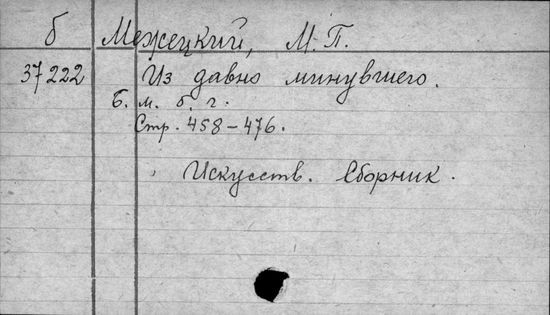 б Межецкий, М. П.
37222 Из давно минувшего.
Б. м. б. г.
Стр. 458-476.
Искусств. Сборник.